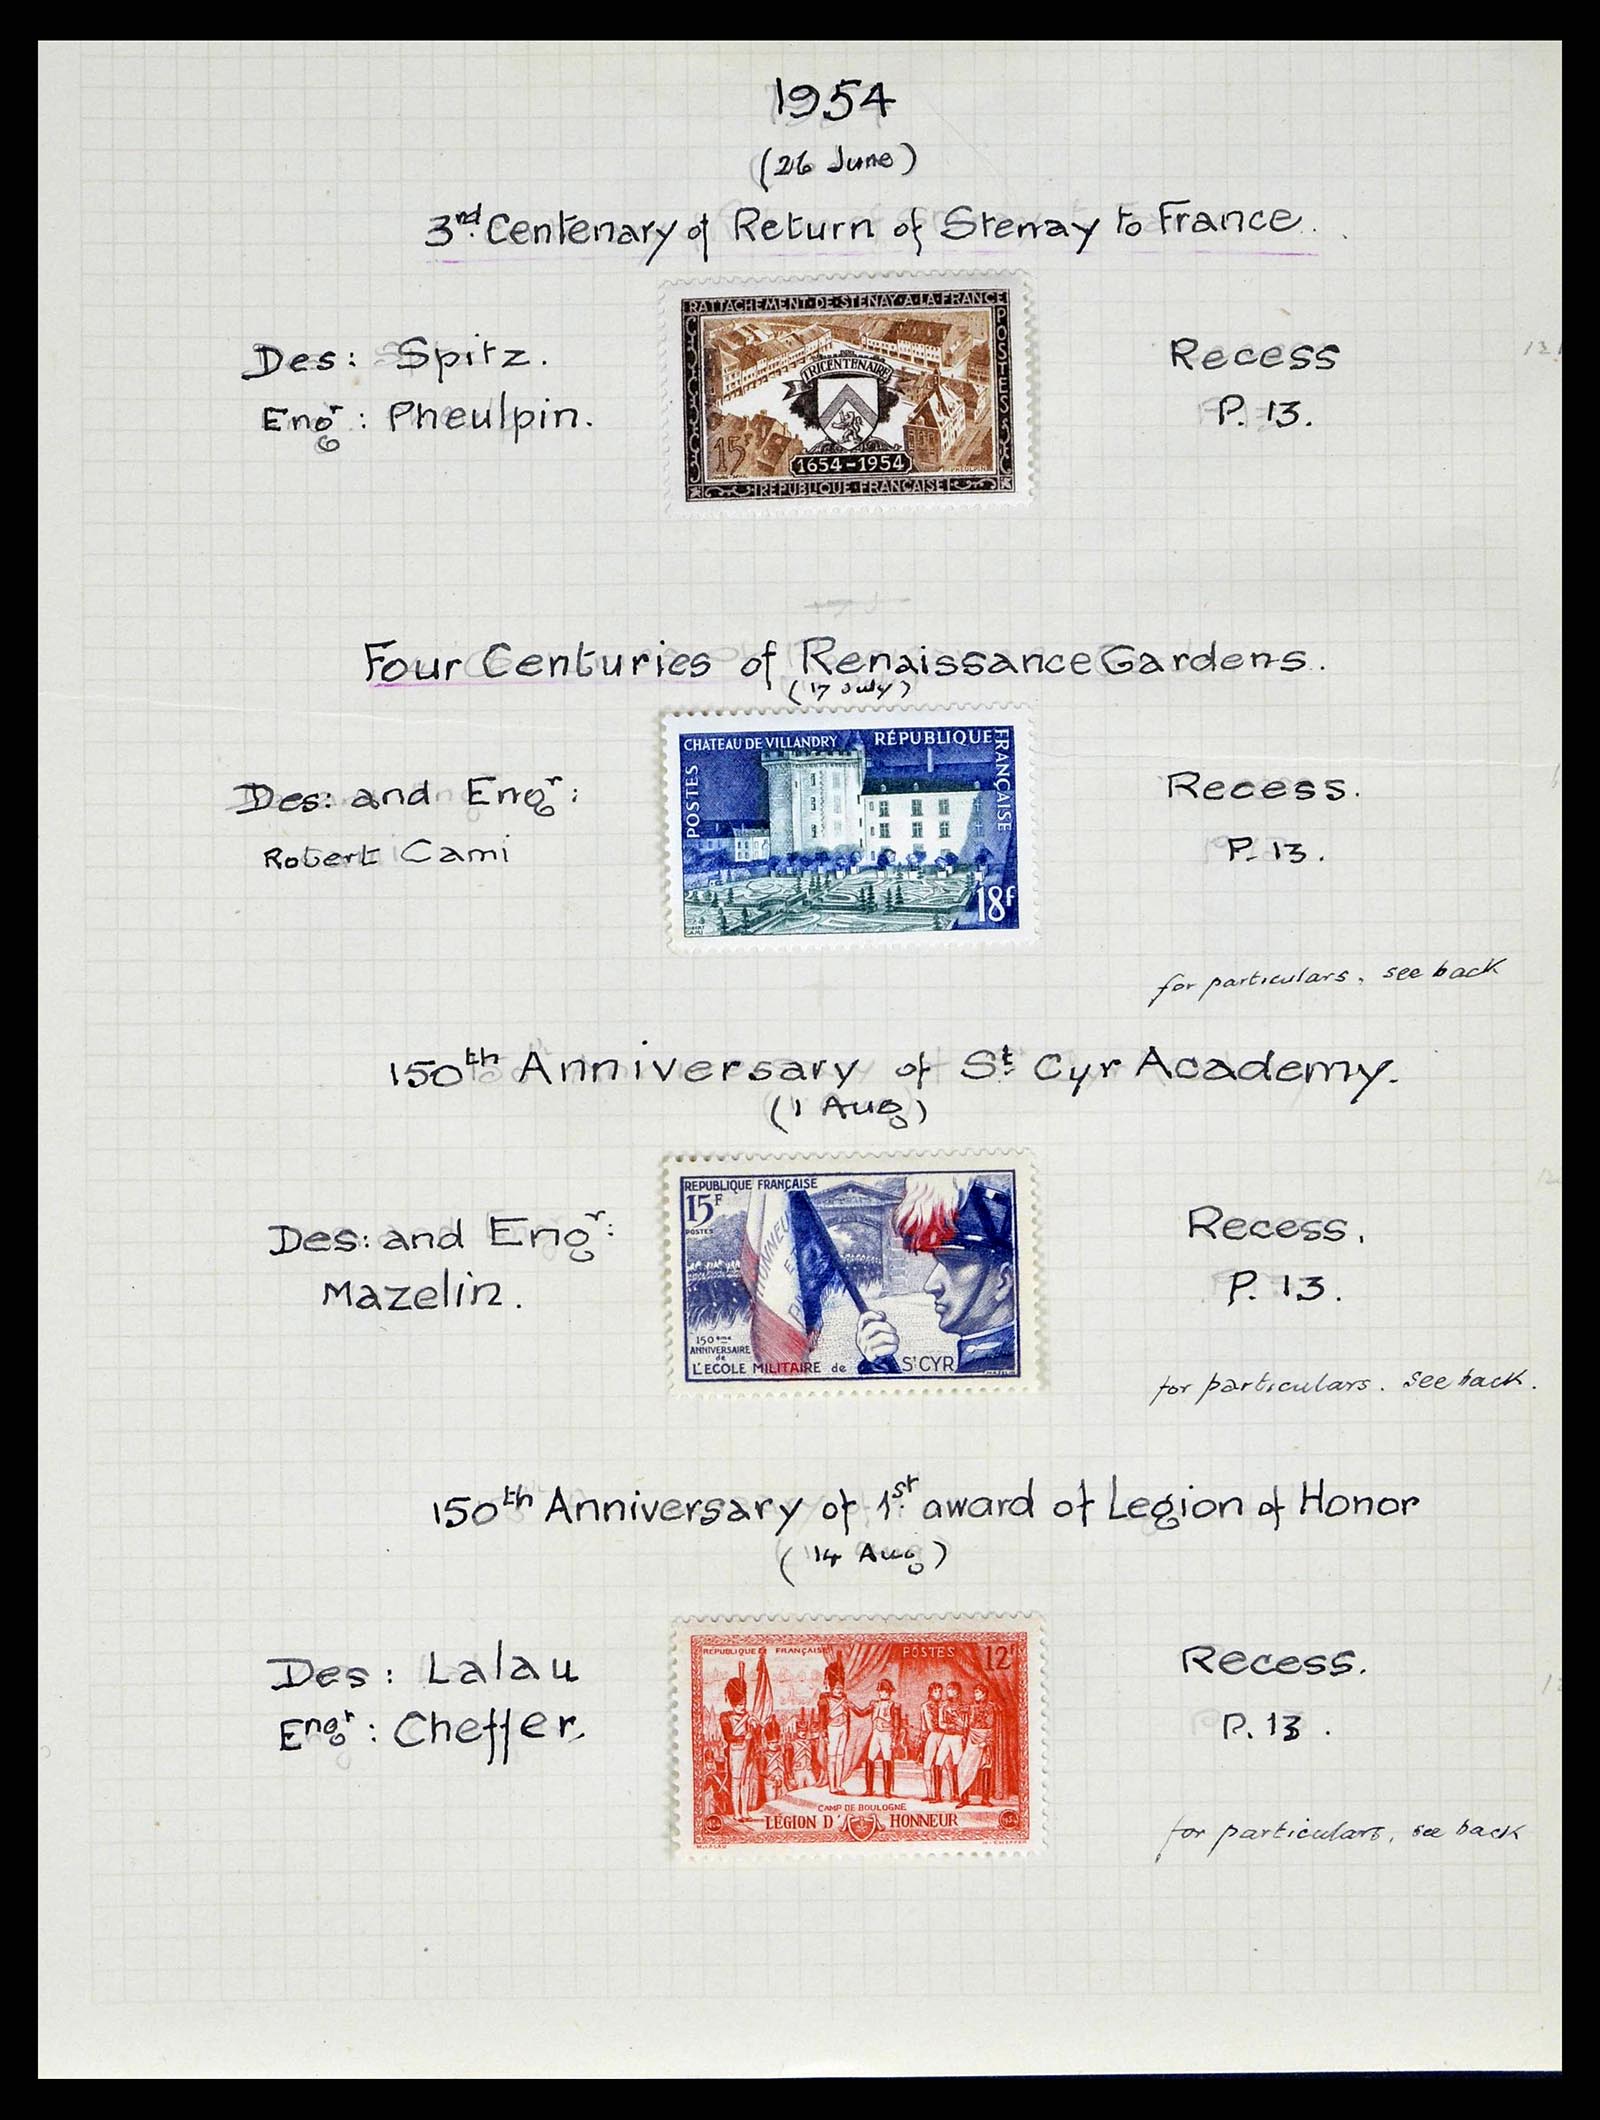 1954
(26 June)
3rd. Centenary of Return of Stenay to France.
RATTACHEMENT·DE·STENAY·A·LA·FRANCE
POSTES
TRICENTENAIRE
15F
1654-1954
PHEULPIN
RÉPUBLIQUE·FRANÇAISE
Des: Spitz.
Engr: Pheulpin.
Recess
P. 13.
Four Centuries of Renaissance Gardens.
(17 July)
CHATEAU DE VILLANDRY RÉPUBLIQUE FRANÇAISE
POSTES
18f
CAMI
Des: and Engr:
Robert Cami
Recess.
P. 13.
for particulars, see back
150th Anniversary of St. Cyr Academy.
(1 Aug)
REPUBLIQUE FRANÇAISE
15F
POSTES
HONNEUR
ET
150ème
ANNIVERSAIRE
de
L'ECOLE MILITAIRE de St CYR
Des: and Engr:
Mazelin.
Recess.
P. 13.
for particulars. see back.
150th Anniversary of 1st. award of Legion of Honor
(14 Aug)
REPUBLIQUE FRANÇAISE POSTES 12F
CAMP DE BOULOGNE
LÉGION D'HONNEUR
Des: Lalau
Engr: Cheffer.
Recess.
P. 13.
for particulars, see back